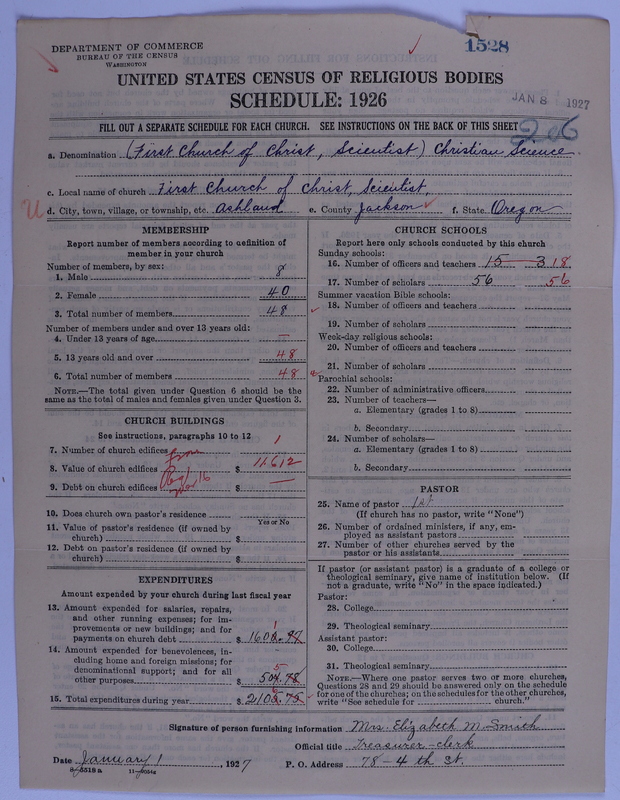 1528
DEPARTMENT OF COMMERCE
BUREAU OF THE CENSUS
WASHINGTON
UNITED STATES CENSUS OF RELIGIOUS BODIES
SCHEDULE: 1926
JAN 8 1927
FILL OUT A SEPARATE SCHEDULE FOR EACH CHURCH. SEE INSTRUCTIONS ON THE BACK OF THIS SHEET
206
a. Denomination (First Church of Christ, Scientist) Christian Science
c. Local name of church First Church of Christ, Scientist,
d. City, town, village, or township, etc. Ashland e. County Jackson f. State Oregon
MEMBERSHIP
Report number of members according to definition of
member in your church
Number of members, by sex:
1. Male 8
2. Female 40
3. Total number of members 48
Number of members under and over 13 years old:
4. Under 13 years of age —
5. 13 years old and over 48
6. Total number of members 48
NOTE.—The total given under Question 6 should be the
same as the total of males and females given under Question 3.
CHURCH BUILDINGS
See instructions, paragraphs 10 to 12
7. Number of church edifices 1
8. Value of church edifices $ 11,612
9. Debt on church edifices $ —
10. Does church own pastor's residence
Yes or No
11. Value of pastor's residence (if owned by
church) $
12. Debt on pastor's residence (if owned by
church) $
EXPENDITURES
Amount expended by your church during last fiscal year
13. Amount expended for salaries, repairs,
and other running expenses; for im-
provements or new buildings; and for
payments on church debt $
14. Amount expended for benevolences, in-
cluding home and foreign missions; for
denominational support; and for all
other purposes $
15. Total expenditures during year $
CHURCH SCHOOLS
Report here only schools conducted by this church
Sunday schools:
16. Number of officers and teachers 15 3 18
17. Number of scholars 56 56
Summer vacation Bible schools:
18. Number of officers and teachers
19. Number of scholars
Week-day religious schools:
20. Number of officers and teachers
21. Number of scholars
Parochial schools:
22. Number of administrative officers
23. Number of teachers—
a. Elementary (grades 1 to 8)
b. Secondary
24. Number of scholars—
a. Elementary (grades 1 to 8)
b. Secondary
PASTOR
25. Name of pastor
(If church has no pastor, write "None")
26. Number of ordained ministers, if any, em-
ployed as assistant pastors
27. Number of other churches served by the
pastor or his assistants
If pastor (or assistant pastor) is a graduate of a college or
theological seminary, give name of institution below. (If
not a graduate, write "No" in the space indicated.)
Pastor:
28. College
29. Theological seminary
Assistant pastor:
30. College
31. Theological seminary
NOTE.—Where one pastor serves two or more churches,
Questions 28 and 29 should be answered only on the schedule
for one of the churches; on the schedules for the other churches,
write "See schedule for church."
Signature of person furnishing information Mrs. Elizabeth M. Smith
Official title Treasurer-clerk
Date January 1, 1927 P. O. Address 78 - 4th St.